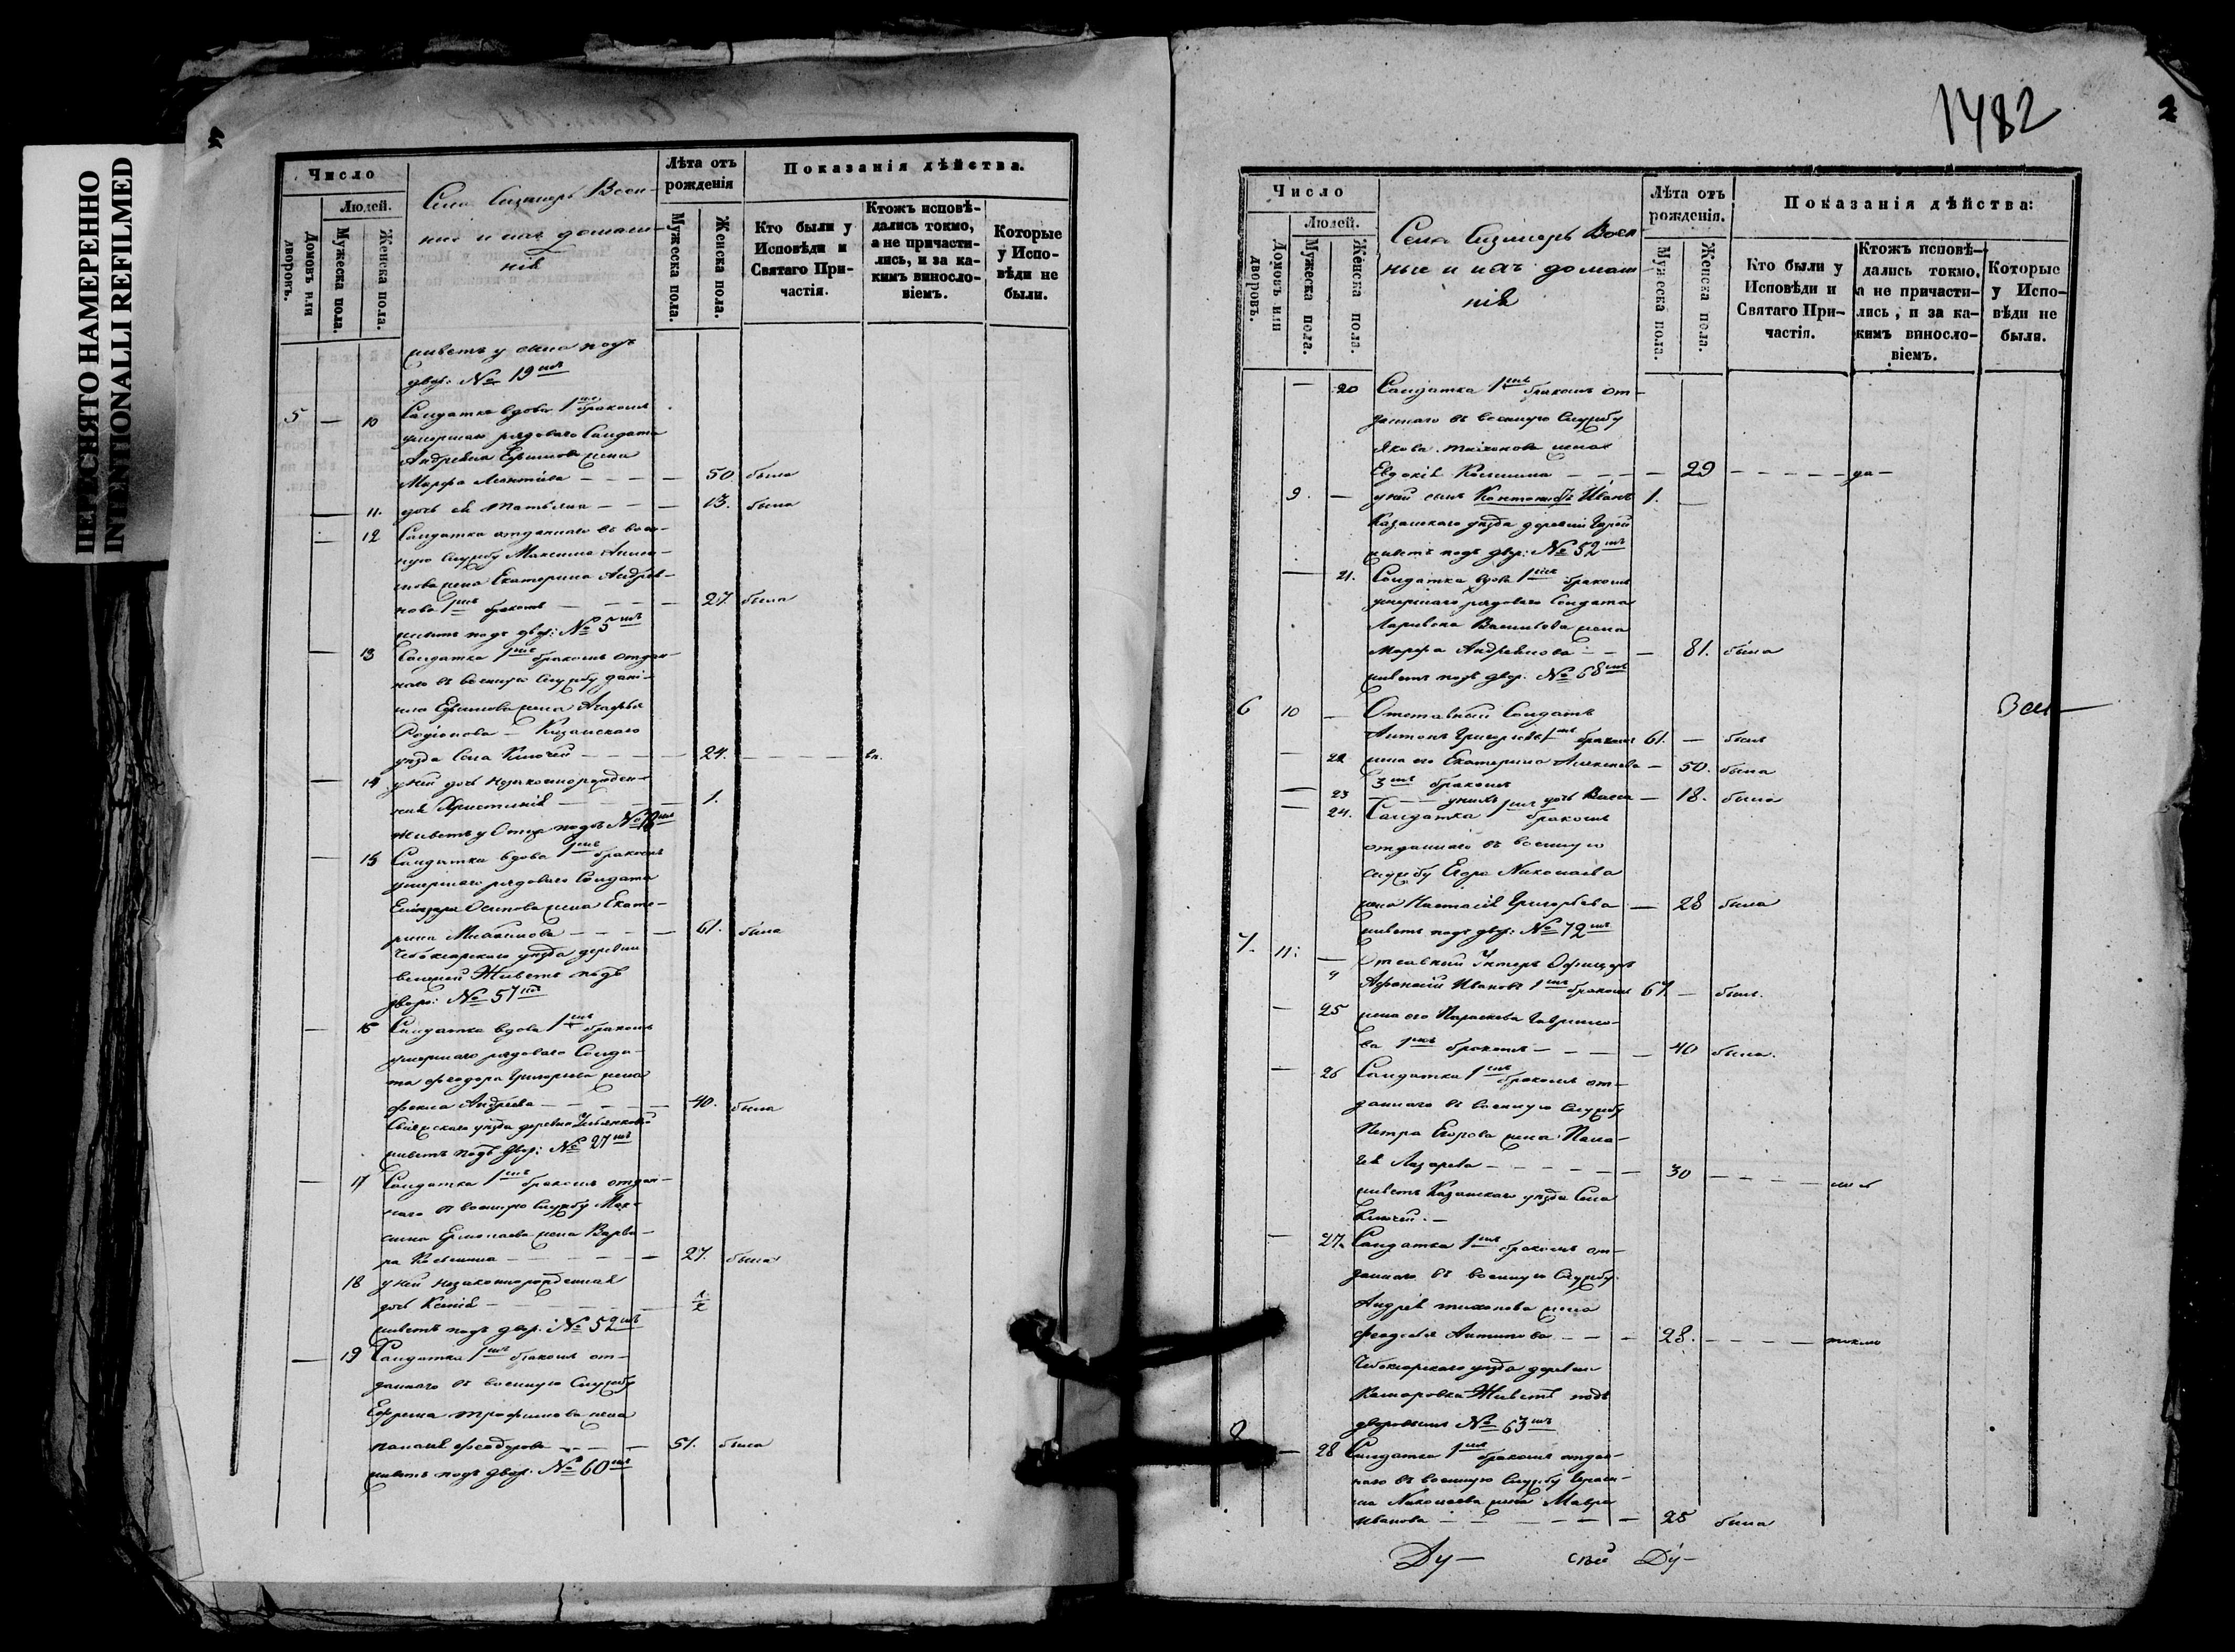 ПЕРЕСНЯТО НАМЕРЕННО
INTENTIONALLI REFILMED
Число
Людей.
Домовъ или дворовъ.
Мужеска пола.
Женска пола.
Села Воен-
ные и ихъ домаш-
нія
Лѣта отъ рожденія
Мужеска пола.
Женска пола.
Показанія дѣйства.
Кто были у Исповѣди и Святаго При-частія.
Ктожъ исповѣ-дались токмо, а не причасти-лись, и за ка-кимъ виносло-віемъ.
Которые у Испо-вѣди не были.
живетъ у отца подъ
двор: № 19мъ
5 — 10 Солдатка вдова 1мъ бракомъ
умершаго рядоваго Солдата
Андреяна Ефимова жена
Марфа Леонтіева — 50 была
— 11. дочь ея Татьяна — 13. была
— 12 Солдатка отданнаго въ воен-
ную службу Максима
жена Екатерина Андрея-
нова 1мъ бракомъ — 27 была
живетъ подъ двор: № 5мъ
— 13 Солдатка 1мъ бракомъ отдан-
наго въ военную службу Дані-
ила Ефимова жена Агафья
Родіонова — Казанскаго
уѣзда Села Ключей — 24. —
— 14 у ней дочь незаконнорожден-
ная Христинія — 1.
Живетъ у Отца подъ №
— 15 Солдатка вдова 1мъ бракомъ
умершаго рядоваго Солдата
Елиазара Осипова жена Екате-
рина — 61. была
Чебоксарскаго уѣзда деревни
Живетъ подъ
двор: № 57мъ
— 16 Солдатка вдова 1мъ бракомъ
умершаго рядоваго Солда-
та Феодора Григорьева жена
Фекла Андреева — 40. была
Свіяжскаго уѣзда деревни
живетъ подъ двор: № 27мъ
— 17 Солдатка 1мъ бракомъ отдан-
наго въ военную службу Мак-
сима Ермолаева жена Варва-
ра Козьмина — 27. была
18 у ней незаконнорожденная
дочь Ксенія — 1/2
живетъ подъ двор. № 52мъ
— 19 Солдатка 1мъ бракомъ от-
даннаго въ военную Службу
Ефрема Трофимова жена
Феодорова — 51. была
живетъ подъ двор. № 60мъ
1482
2
Число
Людей.
Домовъ или дворовъ.
Мужеска пола.
Женска пола.
Села Воен-
ные и ихъ домаш-
нія
Лѣта отъ рожденія.
Мужеска пола.
Женска пола.
Показанія дѣйства:
Кто были у Исповѣди и Святаго При-частія.
Ктожъ исповѣ-дались токмо, а не причасти-лись, и за ка-кимъ виносло-віемъ.
Которые у Испо-вѣди не были.
— 20 Солдатка 1мъ бракомъ от-
даннаго въ военную Службу
Якова Тихонова жена
Евдокія Козмина — 29 —
9. — у ней сынъ Кантонистъ Иванъ 1. —
Казанскаго уѣзда деревни
живетъ подъ двор: № 52мъ
— 21. Солдатка вдова 1мъ бракомъ
умершаго рядоваго Солдата
Ларивона Васильева жена
Марфа Андреянова — 81. была
живетъ подъ двор. № 68мъ
6 10 — Отставный Солдатъ
Антонъ Григорьевъ 1мъ бракомъ 61. — былъ
— 22 жена его Екатерина Алексеева — 50. была
3мъ бракомъ
— 23 у нихъ дочь Васса — 18. была
— 24. Солдатка 1мъ бракомъ
отданнаго въ военную
службу Егора Николаева
жена Настасія Григорьева — 28 была
живетъ подъ двор: № 72мъ
7. 11: — Отставный Унтеръ Офицеръ
Афанасій Ивановъ 1мъ бракомъ 67 — былъ.
— 25 жена его Параскева Гаврило-
ва 1мъ бракомъ — 40 была.
— 26 Солдатка 1мъ бракомъ от-
даннаго въ военную службу
Петра Егорова жена Пела-
гея Лазарева — 30 —
живетъ Казанскаго уѣзда Села
Ключей. —
— 27. Солдатка 1мъ бракомъ от-
даннаго въ военную Службу
Андрея Тихонова жена
Феодосья Антипова — 28. — токмо
Чебоксарскаго уѣзда деревни
Живетъ подъ
дворовымъ № 63мъ
8 — 28 Солдатка 1мъ бракомъ отдан-
наго въ военную Службу
Николаева жена Мавра
Иванова — 25 была
Ду—